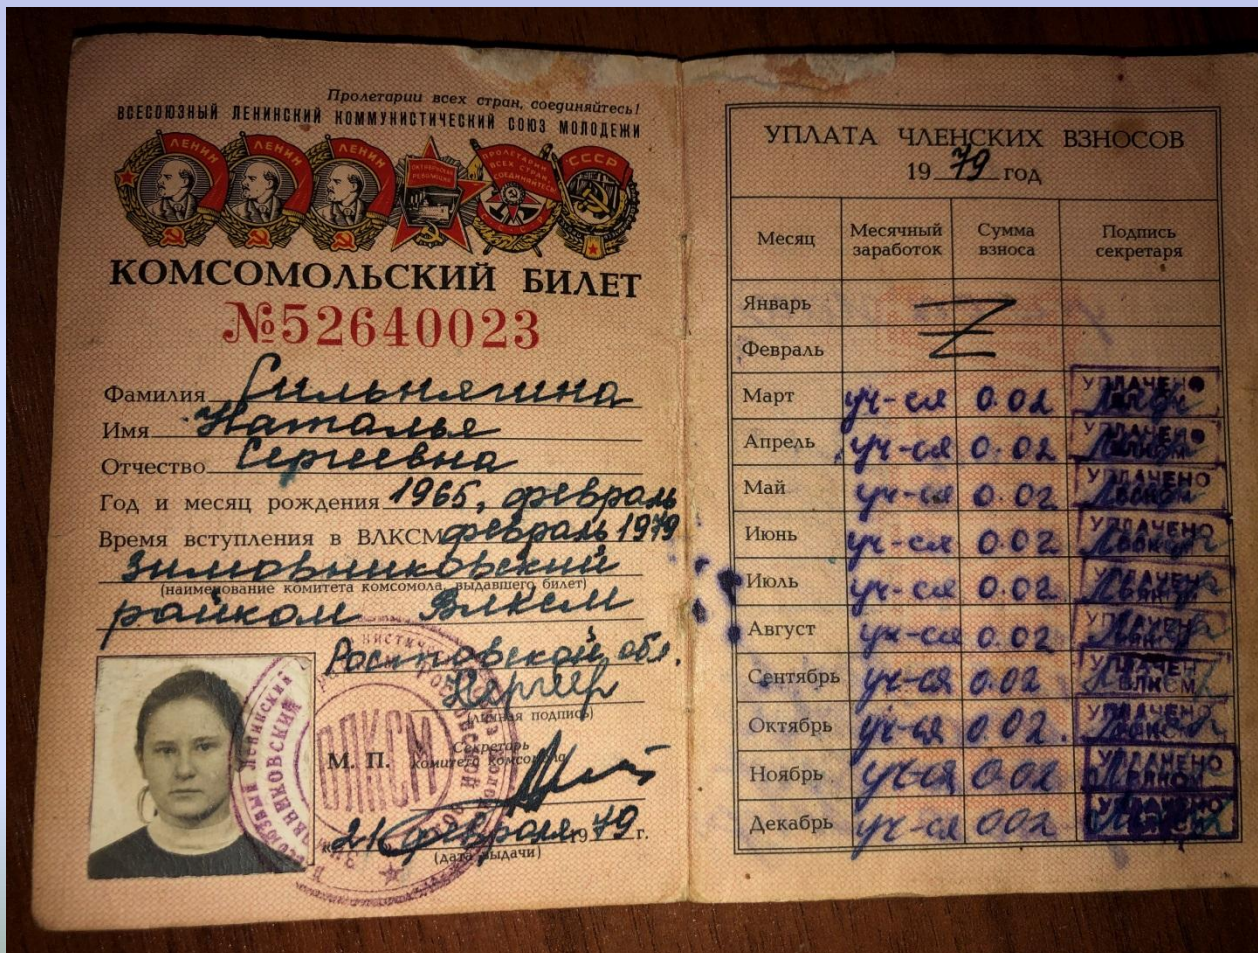 Пролетарии всех стран, соединяйтесь!
ВСЕСОЮЗНЫЙ ЛЕНИНСКИЙ КОММУНИСТИЧЕСКИЙ СОЮЗ МОЛОДЕЖИ
ЛЕНИН ЛЕНИН ЛЕНИН ОКТЯБРЬСКАЯ РЕВОЛЮЦИЯ ПРОЛЕТАРИИ ВСЕХ СТРАН, СОЕДИНЯЙТЕСЬ! СССР СССР
КОМСОМОЛЬСКИЙ БИЛЕТ
№52640023
Фамилия Сильнягина
Имя Наталья
Отчество Сергеевна
Год и месяц рождения 1965, февраль
Время вступления в ВЛКСМ февраль 1979
Зимовниковский
(наименование комитета комсомола, выдавшего билет)
райком ВЛКСМ
Ростовской обл.
(личная подпись)
М. П. Секретарь
комитета комсомола
21 февраля 1979 г.
(дата выдачи)
ВЛКСМ
УПЛАТА ЧЛЕНСКИХ ВЗНОСОВ
1979 год
Месяц Месячный заработок Сумма взноса Подпись секретаря
Январь
Февраль
Март уч-ся 0.02 УПЛАЧЕНО
Апрель уч-ся 0.02 УПЛАЧЕНО
Май уч-ся 0.02 УПЛАЧЕНО
Июнь уч-ся 0.02 УПЛАЧЕНО
Июль уч-ся 0.02 УПЛАЧЕНО
Август уч-ся 0.02 УПЛАЧЕНО
Сентябрь уч-ся 0.02 УПЛАЧЕНО ВЛКСМ
Октябрь уч-ся 0.02. УПЛАЧЕНО
Ноябрь уч-ся 0.02 УПЛАЧЕНО
Декабрь уч-ся 002 УПЛАЧЕНО